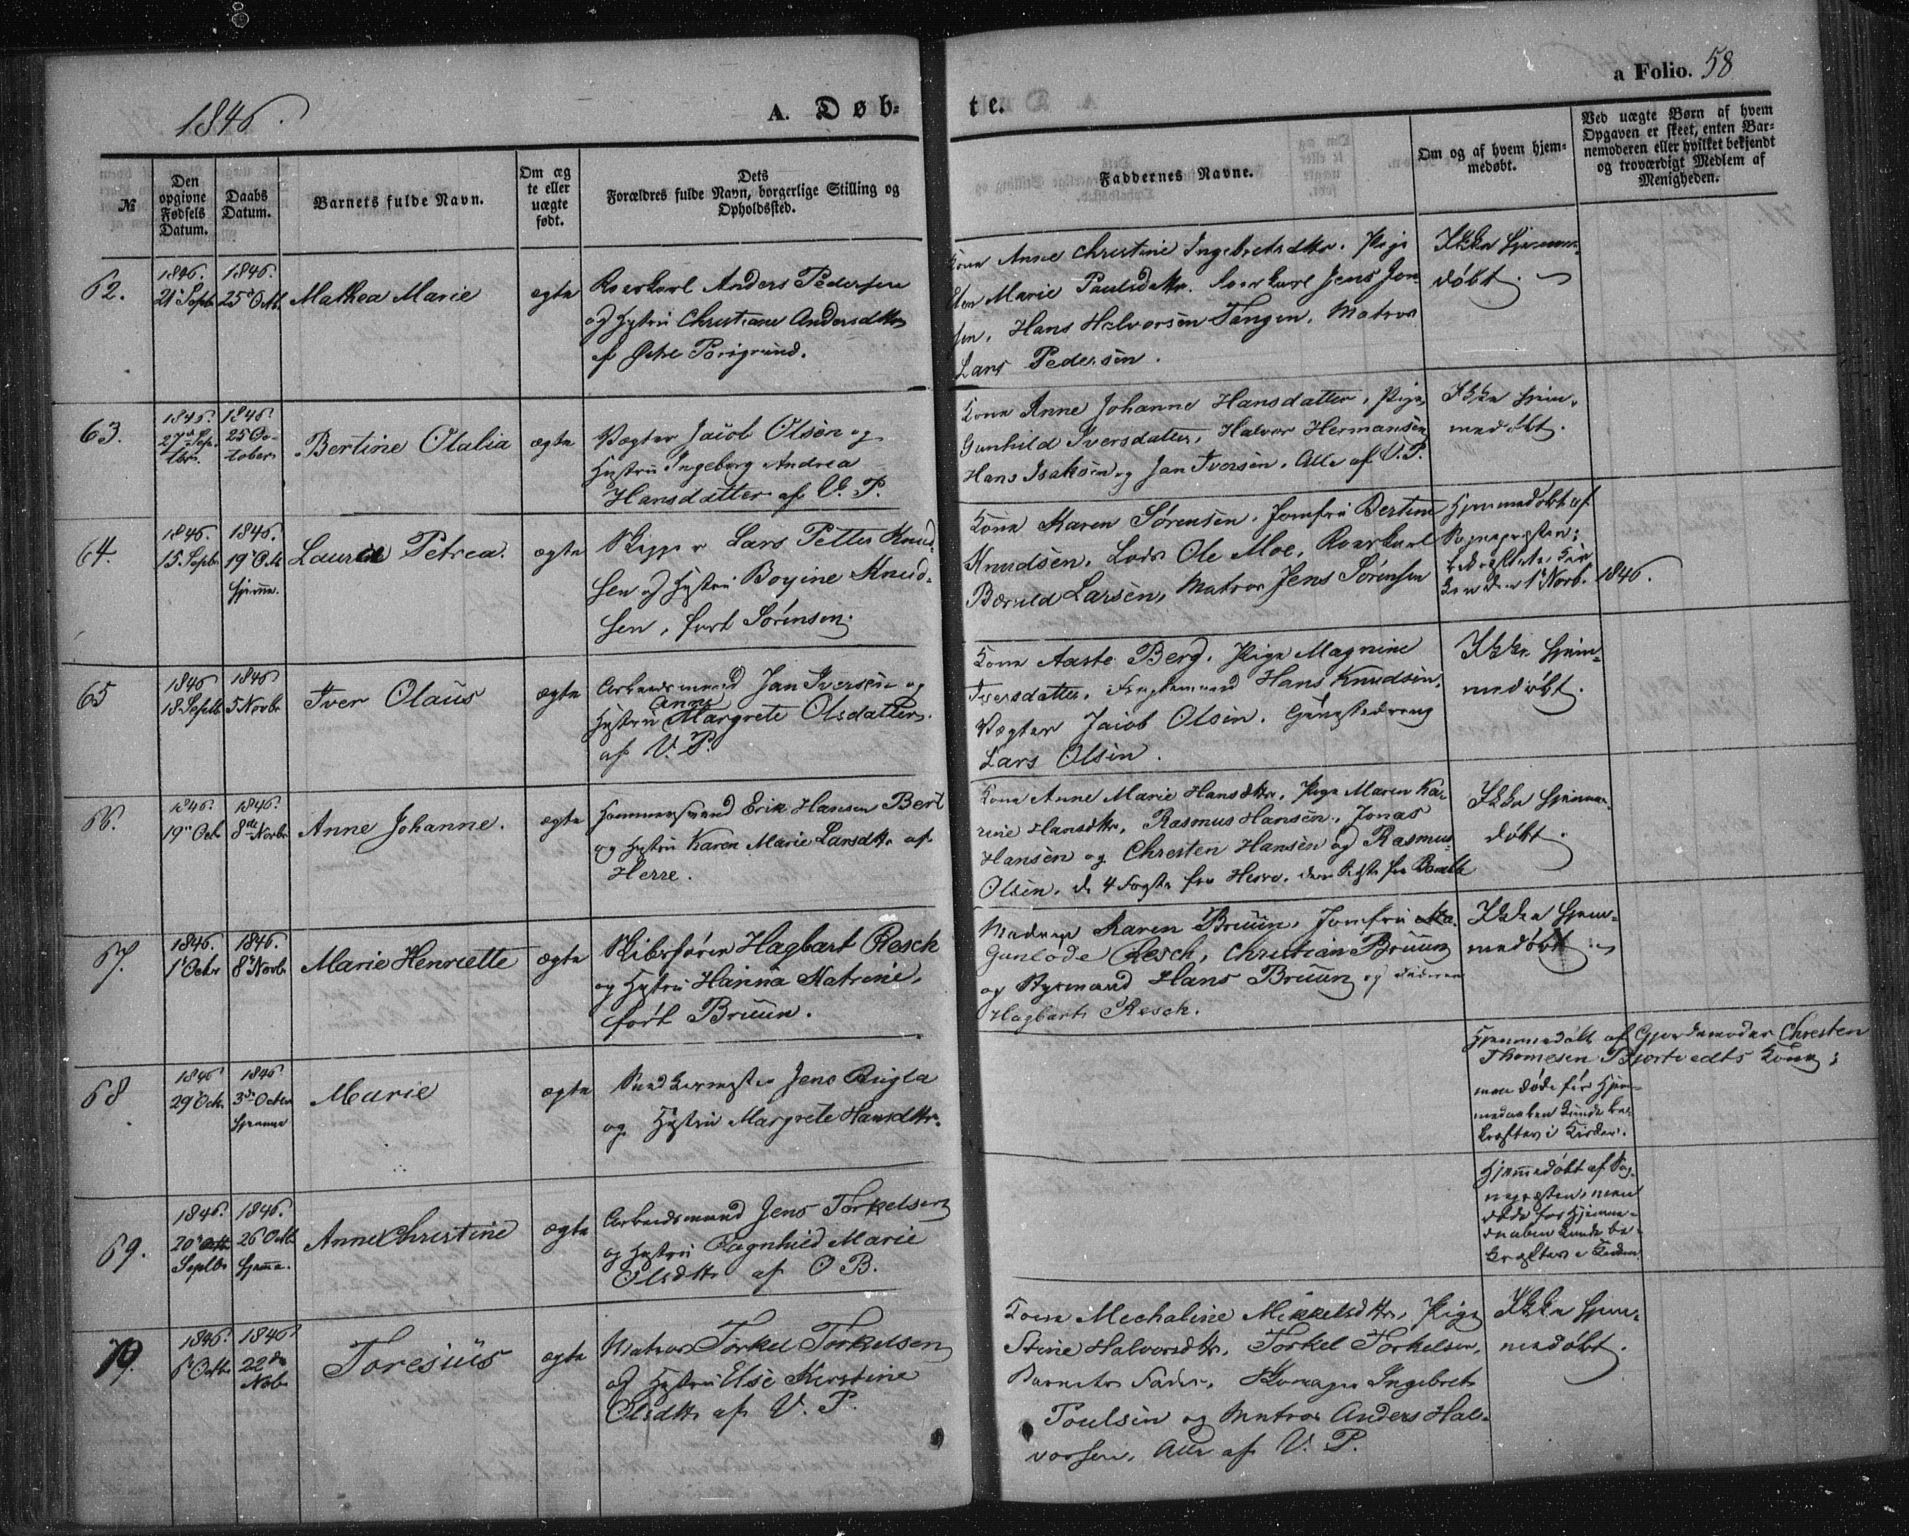 1846.
A. Døb-
te.
a Folio. 58
№
Den opgivne Fødsels Datum.
Daabs Datum.
Barnets fulde Navn.
Om ægte eller uægte født.
Dets Forældres fulde Navn, borgerlige Stilling og Opholdssted.
Faddernes Navne.
Om og af hvem hjemmedøbt.
Ved uægte Børn af hvem Opgaven er skeet, enten Barnemoderen eller hvilket bekjendt og troværdigt Medlem af Menigheden.
62.
1846. 21 Septb
1846. 25 Octb
Mathea Marie
ægte
Anders Pedersen
og Hustru Christiane Andersdttr
af Østre Porsgrund.
Kone Anne Christine Ingebretsdttr. Pige
Marie Paulsdttr. Jens Jen-
sen, Hans Halvorsen Tangen, Matros
Lars Pedersen.
Ikke hjemme-
døbt.
63.
1846. 27de Sep-
tbr.
1846. 25 Oc-
tober
Bertine Otalia
ægte
Vægter Jacob Olsen og
Hustru Ingeborg Andrea
Hansdatter af V. P.
Kone Anne Johanne Hansdatter, Pige
Gunhild Iversdatter, Halvor Hermansen
Hans Isaksen og Jan Iversen, Alle af V. P.
Ikke hjem-
medøbt.
64.
1846. 15 Septb
1846. 19 Oct
hjemme.
Laurae Petrea.
ægte
Skipper Lars Petter Knud-
sen og Hustru Boyine Knud-
sen, født Sørensen.
Kone Karen Sørensen, Jomfru Bertine
Knudsen, Lods Ole Moe,
Larsen, Matros Jens Sørensen
Hjemmedøbt af
Sognepræsten;
den 1 Novb. 1846.
65
1846 18 Septb
1846 5 Novbr
Iver Olaus
ægte
Arbeidsmand Jan Iversen og
Hustru Anne Margrete Olsdatter.
af V. P.
Kone Aaste Berg, Pige Magnine
Iversdatter, Hans Knudsen,
Vægter Jacob Olsen,
Lars Olsen.
Ikke hjem-
medøbt.
66.
1846. 19 Octr
1846. 8de Novbr
Anne Johanne.
ægte
Erik Hansen
og Hustru Karen Marie Larsdttr af
Herre.
Kone Anne Marie Hansdttr, Pige Maren Ka-
rine Hansdttr, Rasmus Hansen, Jonas
Hansen og Christen Hansen og Rasmus
Olsen, de 4 første fra Herre, den sidste fra Bamble
Ikke hjemme-
døbt.
67.
1846. 1 Octr
1846. 8 Novb
Marie Henriette
ægte
Skibsfører Hagbart Resch
og Hustru Hanna Katrine,
født Bruun.
Madame Karen Bruun, Jomfru
Gunlode Resch, Christian Bruun
og Styrmand Hans Bruun og Faderen
Hagbart Resch.
Ikke hjem-
medøbt.
68
1846 29 Octr
1846 3 Octbr
hjemme
Marie
ægte
Jens Rugla
og Hustru Margrete Hansdttr.
Hjemmedøbt af Gjordemoder Christen
Thomesen Bjortvedts Kone;
men døde før hjem-
medaaben kunde be-
kræftes i Kirken.
69.
1846. 20 Septbr
1846. 26 Octb
hjemme.
Anne Christine
ægte
Arbeidsmand Jens Torkelsen
og Hustru Ragnhild Marie
Olsdttr af O B.
Hjemmedøbt af Sog-
nepræsten, men
døde før hjemme-
daaben kunde be-
kræftes i Kirken
70.
1846. 6 Octb
1846. 22de
Novb
Toresius
ægte
Matros Torkel Torkelsen
og Hustru Else Kirstine
Olsdttr af V. P.
Kone Mechaline Mikkelsdttr, Pige
Stine Halvorsdttr, Torkel Torkelsen,
Barnets Fader, Ingebret
Poulsen og Matros Anders Hal-
vorsen, Alle af V. P.
Ikke hjem-
medøbt.